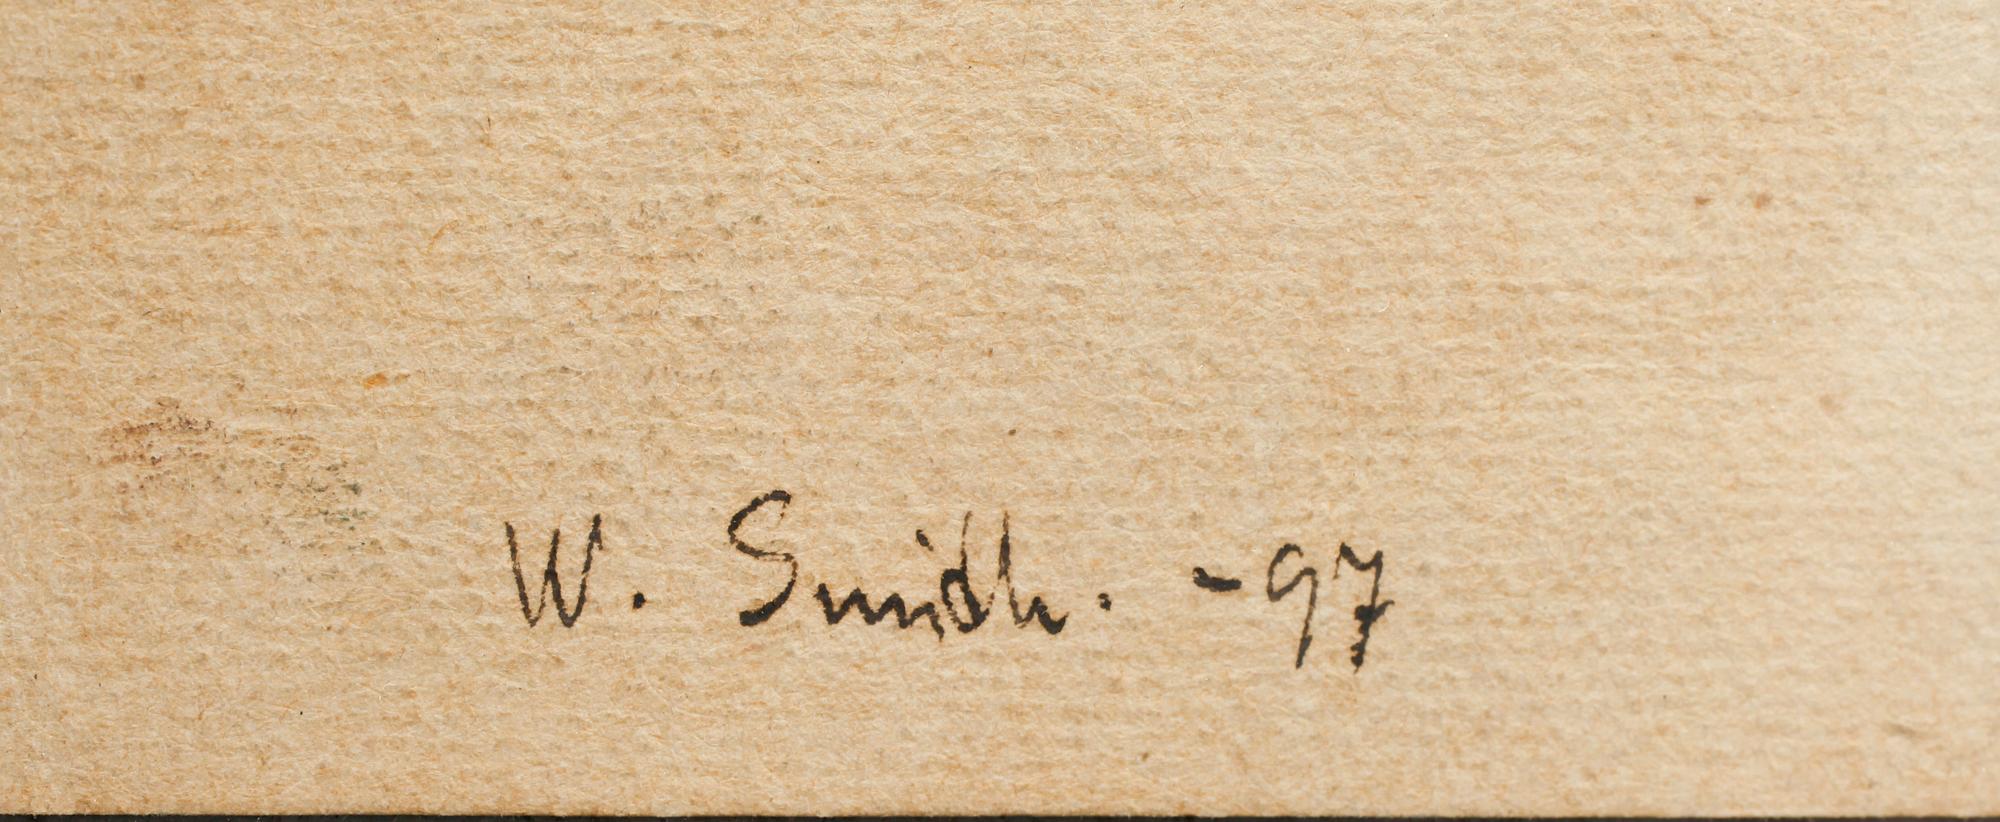 W. Smith. -97